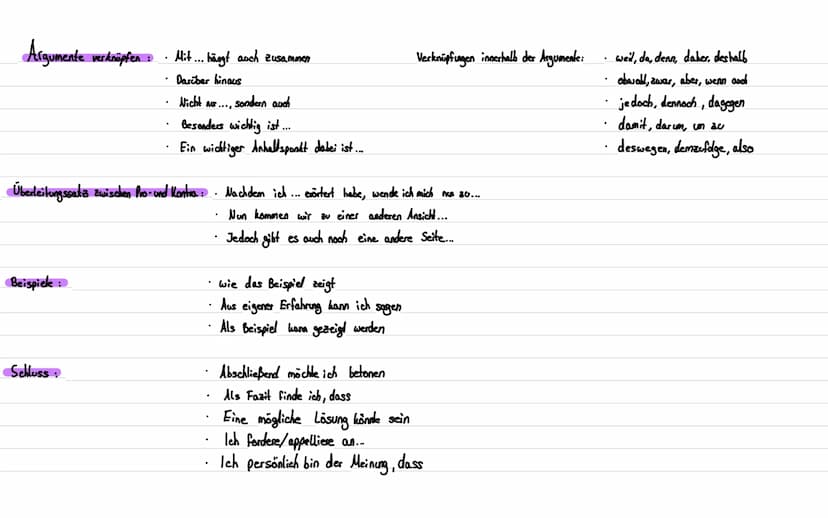 Argumente verknüpfen : · Mit... hängt auch zusammen
· Darüber hinaus
· Nicht nur..., sondern auch
· Besonders wichtig ist...
· Ein wichtiger Anhaltspunkt dabei ist...
Verknüpfungen innerhalb der Argumente: · weil, da, denn, daher, deshalb
· obwohl, zwar, aber, wenn auch
· jedoch, dennoch, dagegen
· damit, darum, um zu
· deswegen, demzufolge, also
Überleitungssatz zwischen Pro- und Kontra : · Nachdem ich ... erörtert habe, wende ich mich nun zu...
· Nun kommen wir zu einer anderen Ansicht...
· Jedoch gibt es auch noch eine andere Seite...
Beispiele : · wie das Beispiel zeigt
· Aus eigener Erfahrung kann ich sagen
· Als Beispiel kann gezeigt werden
Schluss : · Abschließend möchte ich betonen
· Als Fazit finde ich, dass
· Eine mögliche Lösung könnte sein
· Ich fordere/appelliere an...
· Ich persönlich bin der Meinung, dass